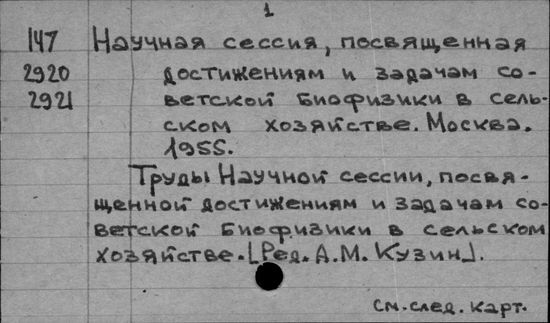 1
147 Научная сессия, посвященная
2920 достижениям и задачам со-
2921 ветской биофизики в сель-
ском хозяйстве. Москва.
1955.
Труды Научной сессии, посвя-
щенной достижениям и задачам со-
ветской биофизики в сельском
хозяйстве. [Ред. А.М. Кузин].
См. след. карт.